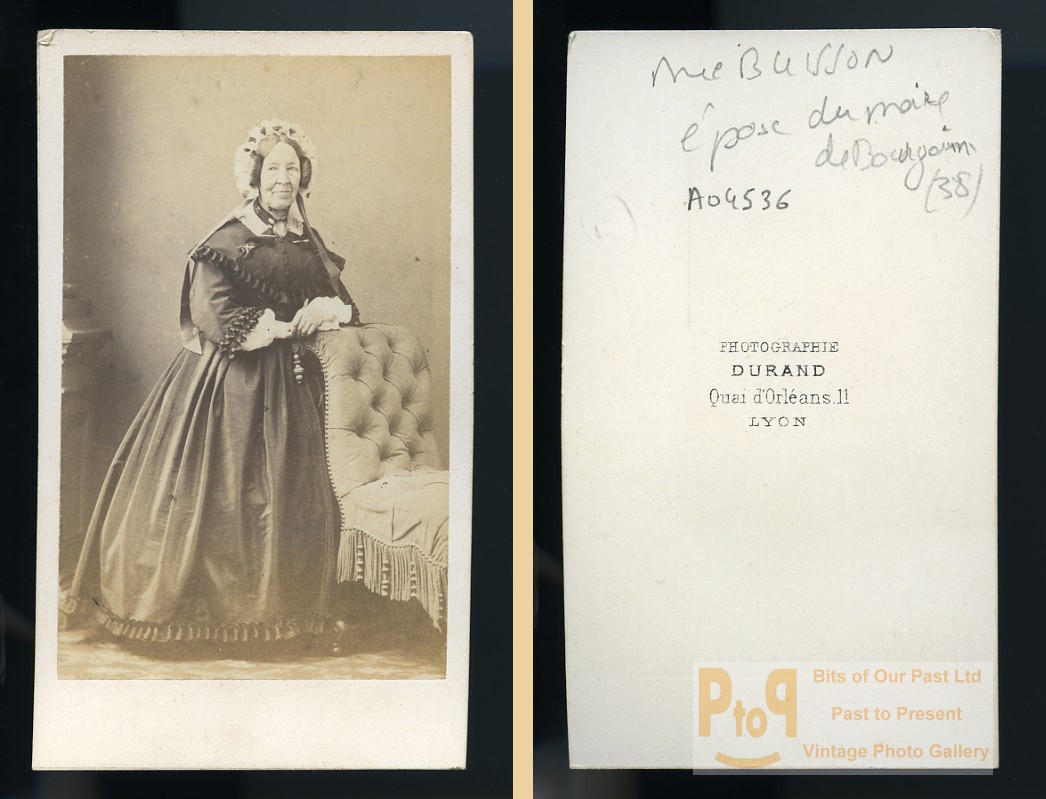 Mme BUISSON
épouse du maire
de Bourgoin
(38)
A04536
PHOTOGRAPHIE
DURAND
Quai d'Orléans.11
LYON
PtoP
Bits of Our Past Ltd
Past to Present
Vintage Photo Gallery